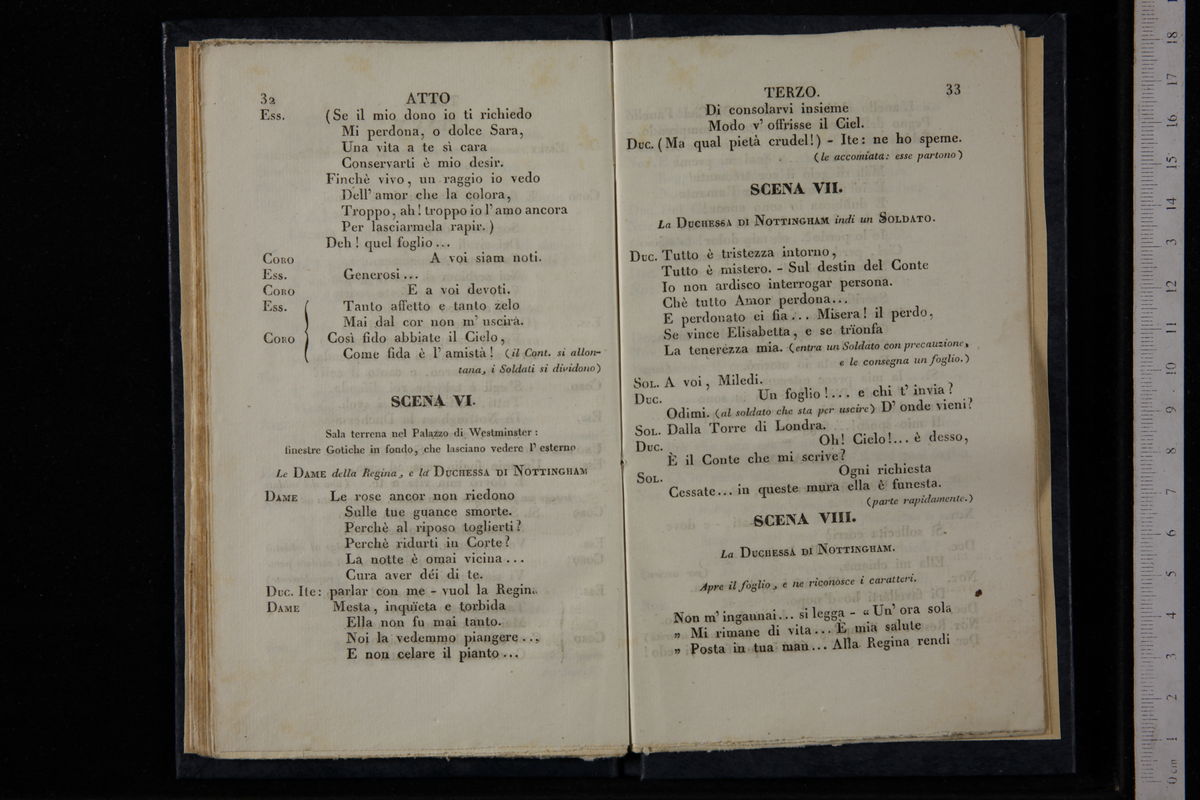 32 ATTO
Ess. (Se il mio dono io ti richiedo
Mi perdona, o dolce Sara,
Una vita a te sì cara
Conservarti è mio desir.
Finchè vivo, un raggio io vedo
Dell' amor che la colora,
Troppo, ah! troppo io l' amo ancora
Per lasciarmela rapir.)
Deh! quel foglio...
Coro A voi siam noti.
Ess. Generosi...
Coro E a voi devoti.
Ess. Tanto affetto e tanto zelo
Mai dal cor non m' uscirà.
Coro Così fido abbiate il Cielo,
Come fida è l' amistà! (il Cont. si allon-
tana, i Soldati si dividono)
SCENA VI.
Sala terrena nel Palazzo di Westminster:
finestre Gotiche in fondo, che lasciano vedere l' esterno
Le Dame della Regina, e la Duchessa di Nottingham
Dame Le rose ancor non riedono
Sulle tue guance smorte.
Perchè al riposo toglierti?
Perchè ridurti in Corte?
La notte è omai vicina...
Cura aver déi di te.
Duc. Ite: parlar con me - vuol la Regina
Dame Mesta, inquïeta e torbida
Ella non fu mai tanto.
Noi la vedemmo piangere...
E non celare il pianto...
TERZO. 33
Di consolarvi insieme
Modo v' offrisse il Ciel.
Duc. (Ma qual pietà crudel!) - Ite: ne ho speme.
(le accomiata: esse partono)
SCENA VII.
La Duchessa di Nottingham indi un Soldato.
Duc. Tutto è tristezza intorno,
Tutto è mistero. - Sul destin del Conte
Io non ardisco interrogar persona.
Chè tutto Amor perdona...
E perdonato ei fia... Misera! il perdo,
Se vince Elisabetta, e se trïonfa
La tenerezza mia. (entra un Soldato con precauzione,
e le consegna un foglio.)
Sol. A voi, Miledi.
Duc. Un foglio!... e chi t' invia?
Odimi. (al soldato che sta per uscire) D' onde vieni?
Sol. Dalla Torre di Londra.
Duc. Oh! Cielo!... è desso,
È il Conte che mi scrive?
Sol. Ogni richiesta
Cessate... in queste mura ella è funesta.
(parte rapidamente.)
SCENA VIII.
La Duchessa di Nottingham.
Apre il foglio, e ne riconosce i caratteri.
Non m' ingannai... si legga - « Un' ora sola
„ Mi rimane di vita... E mia salute
„ Posta in tua man... Alla Regina rendi
0 cm 1 2 3 4 5 6 7 8 9 10 11 12 13 14 15 16 17 18